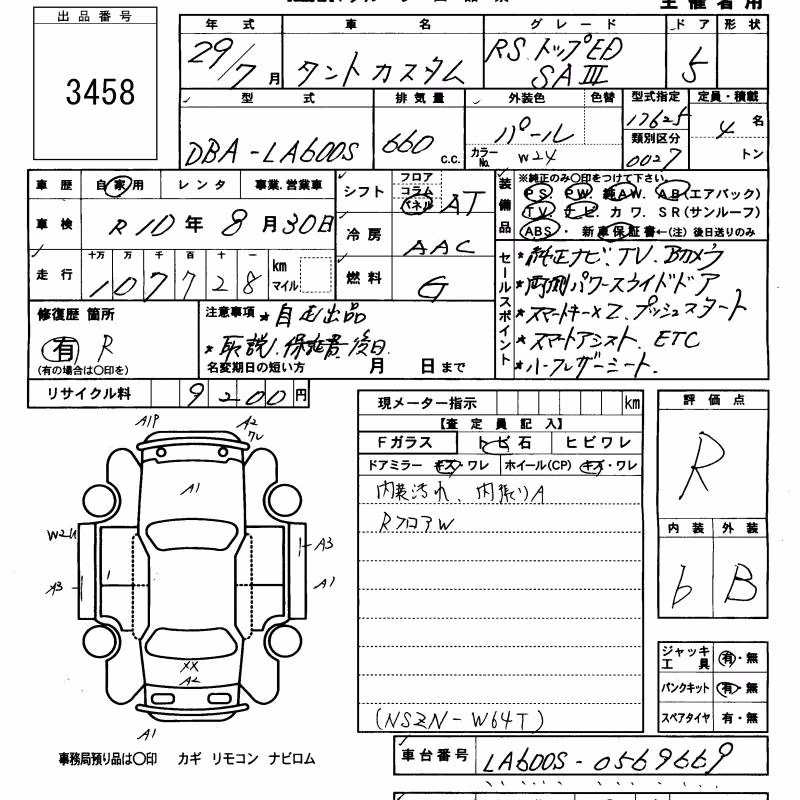 出品番号
3458
主催者用
年式 車名 グレード ドア 形状
29/7月 タントカスタム RS.トップED SAⅢ 5
型式 排気量 外装色 色替 型式指定 定員・積載
DBA-LA600S 660 c.c. パール 17625 4名
カラーNo. W24 類別区分 0027 トン
車歴 自家用 レンタ 事業.営業車
車検 R10年8月30日
走行 十万 万 千 百 十 一 km マイル
107728
シフト フロア コラム パネル AT
冷房 AAC
燃料 G
装備品 ※純正のみ○印をつけて下さい。
PS. PW. 純AW. AB(エアバック)
TV. ナビ. カワ. SR(サンルーフ)
ABS・ 新車保証書←(注)後日送りのみ
セールスポイント
*純正ナビ、TV、Bカメラ
*両側パワースライドドア
*スマートキー×2、プッシュスタート
*スマートアシスト、ETC
*ハーフレザーシート、
修復歴 箇所
有 R
(有の場合は○印を)
注意事項 *自走出品
*取説、保証書後日
名変期日の短い方 月 日まで
リサイクル料 9200円
現メーター指示 km
【査定員記入】
Fガラス トビ石 ヒビワレ
ドアミラー キズ・ワレ ホイール(CP) キズ・ワレ
内装汚れ、内張りA
RフロアW
(NSZN-W64T)
評価点
R
内装 外装
b B
ジャッキ工具 有・無
パンクキット 有・無
スペアタイヤ 有・無
A1P A2
A1
W2U A3
A3 A1
XX
A2
A1
事務局預り品は○印 カギ リモコン ナビロム
車台番号 LA600S-0569669